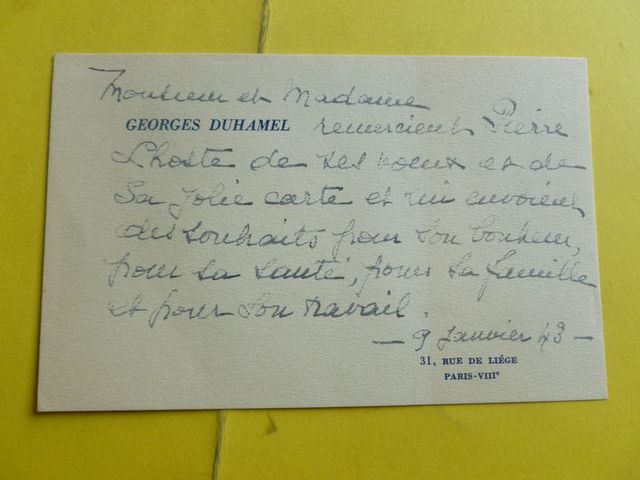 Monsieur et Madame
GEORGES DUHAMEL remercient Pierre
Lhoste de ses voeux et de
sa jolie carte et lui envoient
des souhaits pour son bonheur,
pour sa santé, pour sa famille
et pour son travail.
— 9 janvier 43 —
31, RUE DE LIÉGE
PARIS-VIIIe